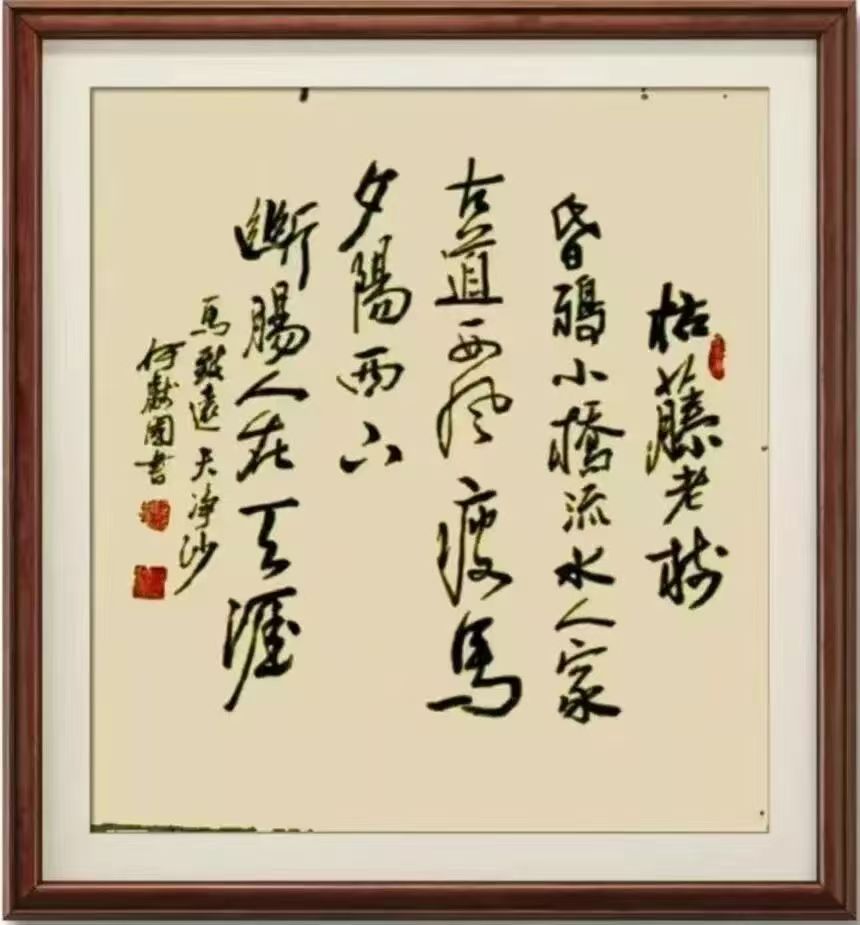 枯藤老树
昏鴉小橋流水人家
古道西风瘦馬
夕陽西下
断腸人在天涯
馬致遠天净沙
何献國書